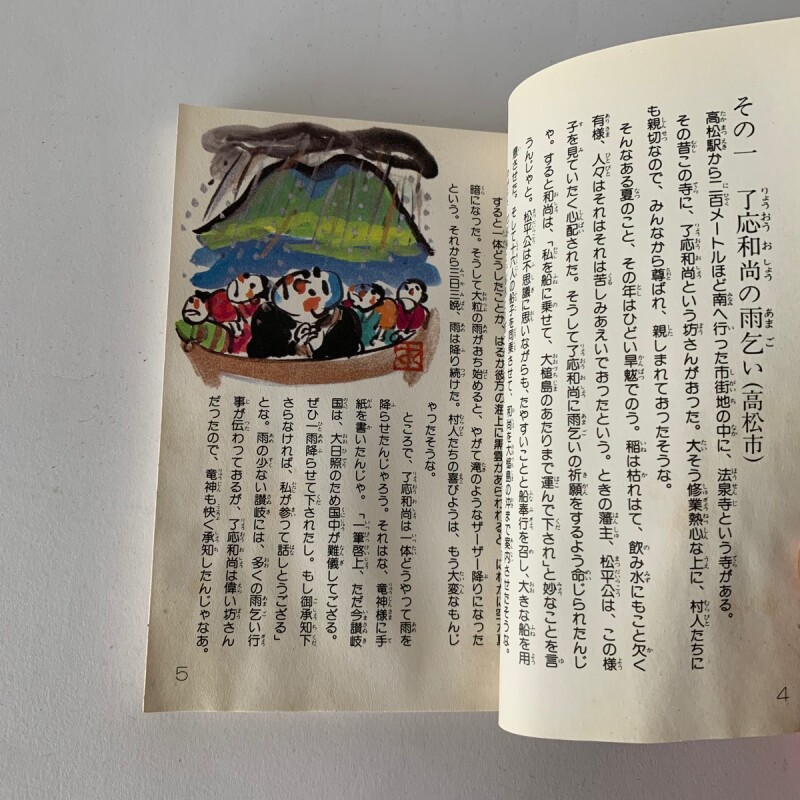 その一 了応和尚の雨乞い(高松市)
高松駅から二百メートルほど南へ行った市街地の中に、法泉寺という寺がある。
その昔この寺に、了応和尚という坊さんがおった。大そう修業熱心な上に、村人たちに
も親切なので、みんなから尊ばれ、親しまれておったそうな。
そんなある夏のこと、その年はひどい旱魃でのう。稲は枯れはて、飲み水にもこと欠く
有様、人々はそれはそれは苦しみあえいでおったという。ときの藩主、松平公は、この様
子を見ていたく心配された。そうして了応和尚に雨乞いの祈願をするよう命じられたんじ
ゃ。すると和尚は、「私を船に乗せて、大槌島のあたりまで運んで下され」と妙なことを言
うんじゃと。松平公は不思議に思いながらも、たやすいことと船奉行を召し、大きな船を用
意させた。そして十六人の船子を同乗させて、和尚を大槌島の沖まで案内させたそうな。
すると一体どうしたことか、はるか彼方の海上に黒雲があらわれると、にわかに空が真
暗になった。そうして大粒の雨がおち始めると、やがて滝のようなザーザー降りになった
という。それから三日三晩、雨は降り続けた。村人たちの喜びようは、もう大変なもんじ
ゃったそうな。
ところで、了応和尚は一体どうやって雨を
降らせたんじゃろう。それはな、竜神様に手
紙を書いたんじゃ。「一筆啓上、ただ今讃岐
国は、大日照のため国中が難儀してござる。
ぜひ一雨降らせて下されたし。もし御承知下
さらなければ、私が参って話しとうござる」
とな。雨の少ない讃岐には、多くの雨乞い行
事が伝わっておるが、了応和尚は偉い坊さん
だったので、竜神も快く承知したんじゃなあ。
4
5